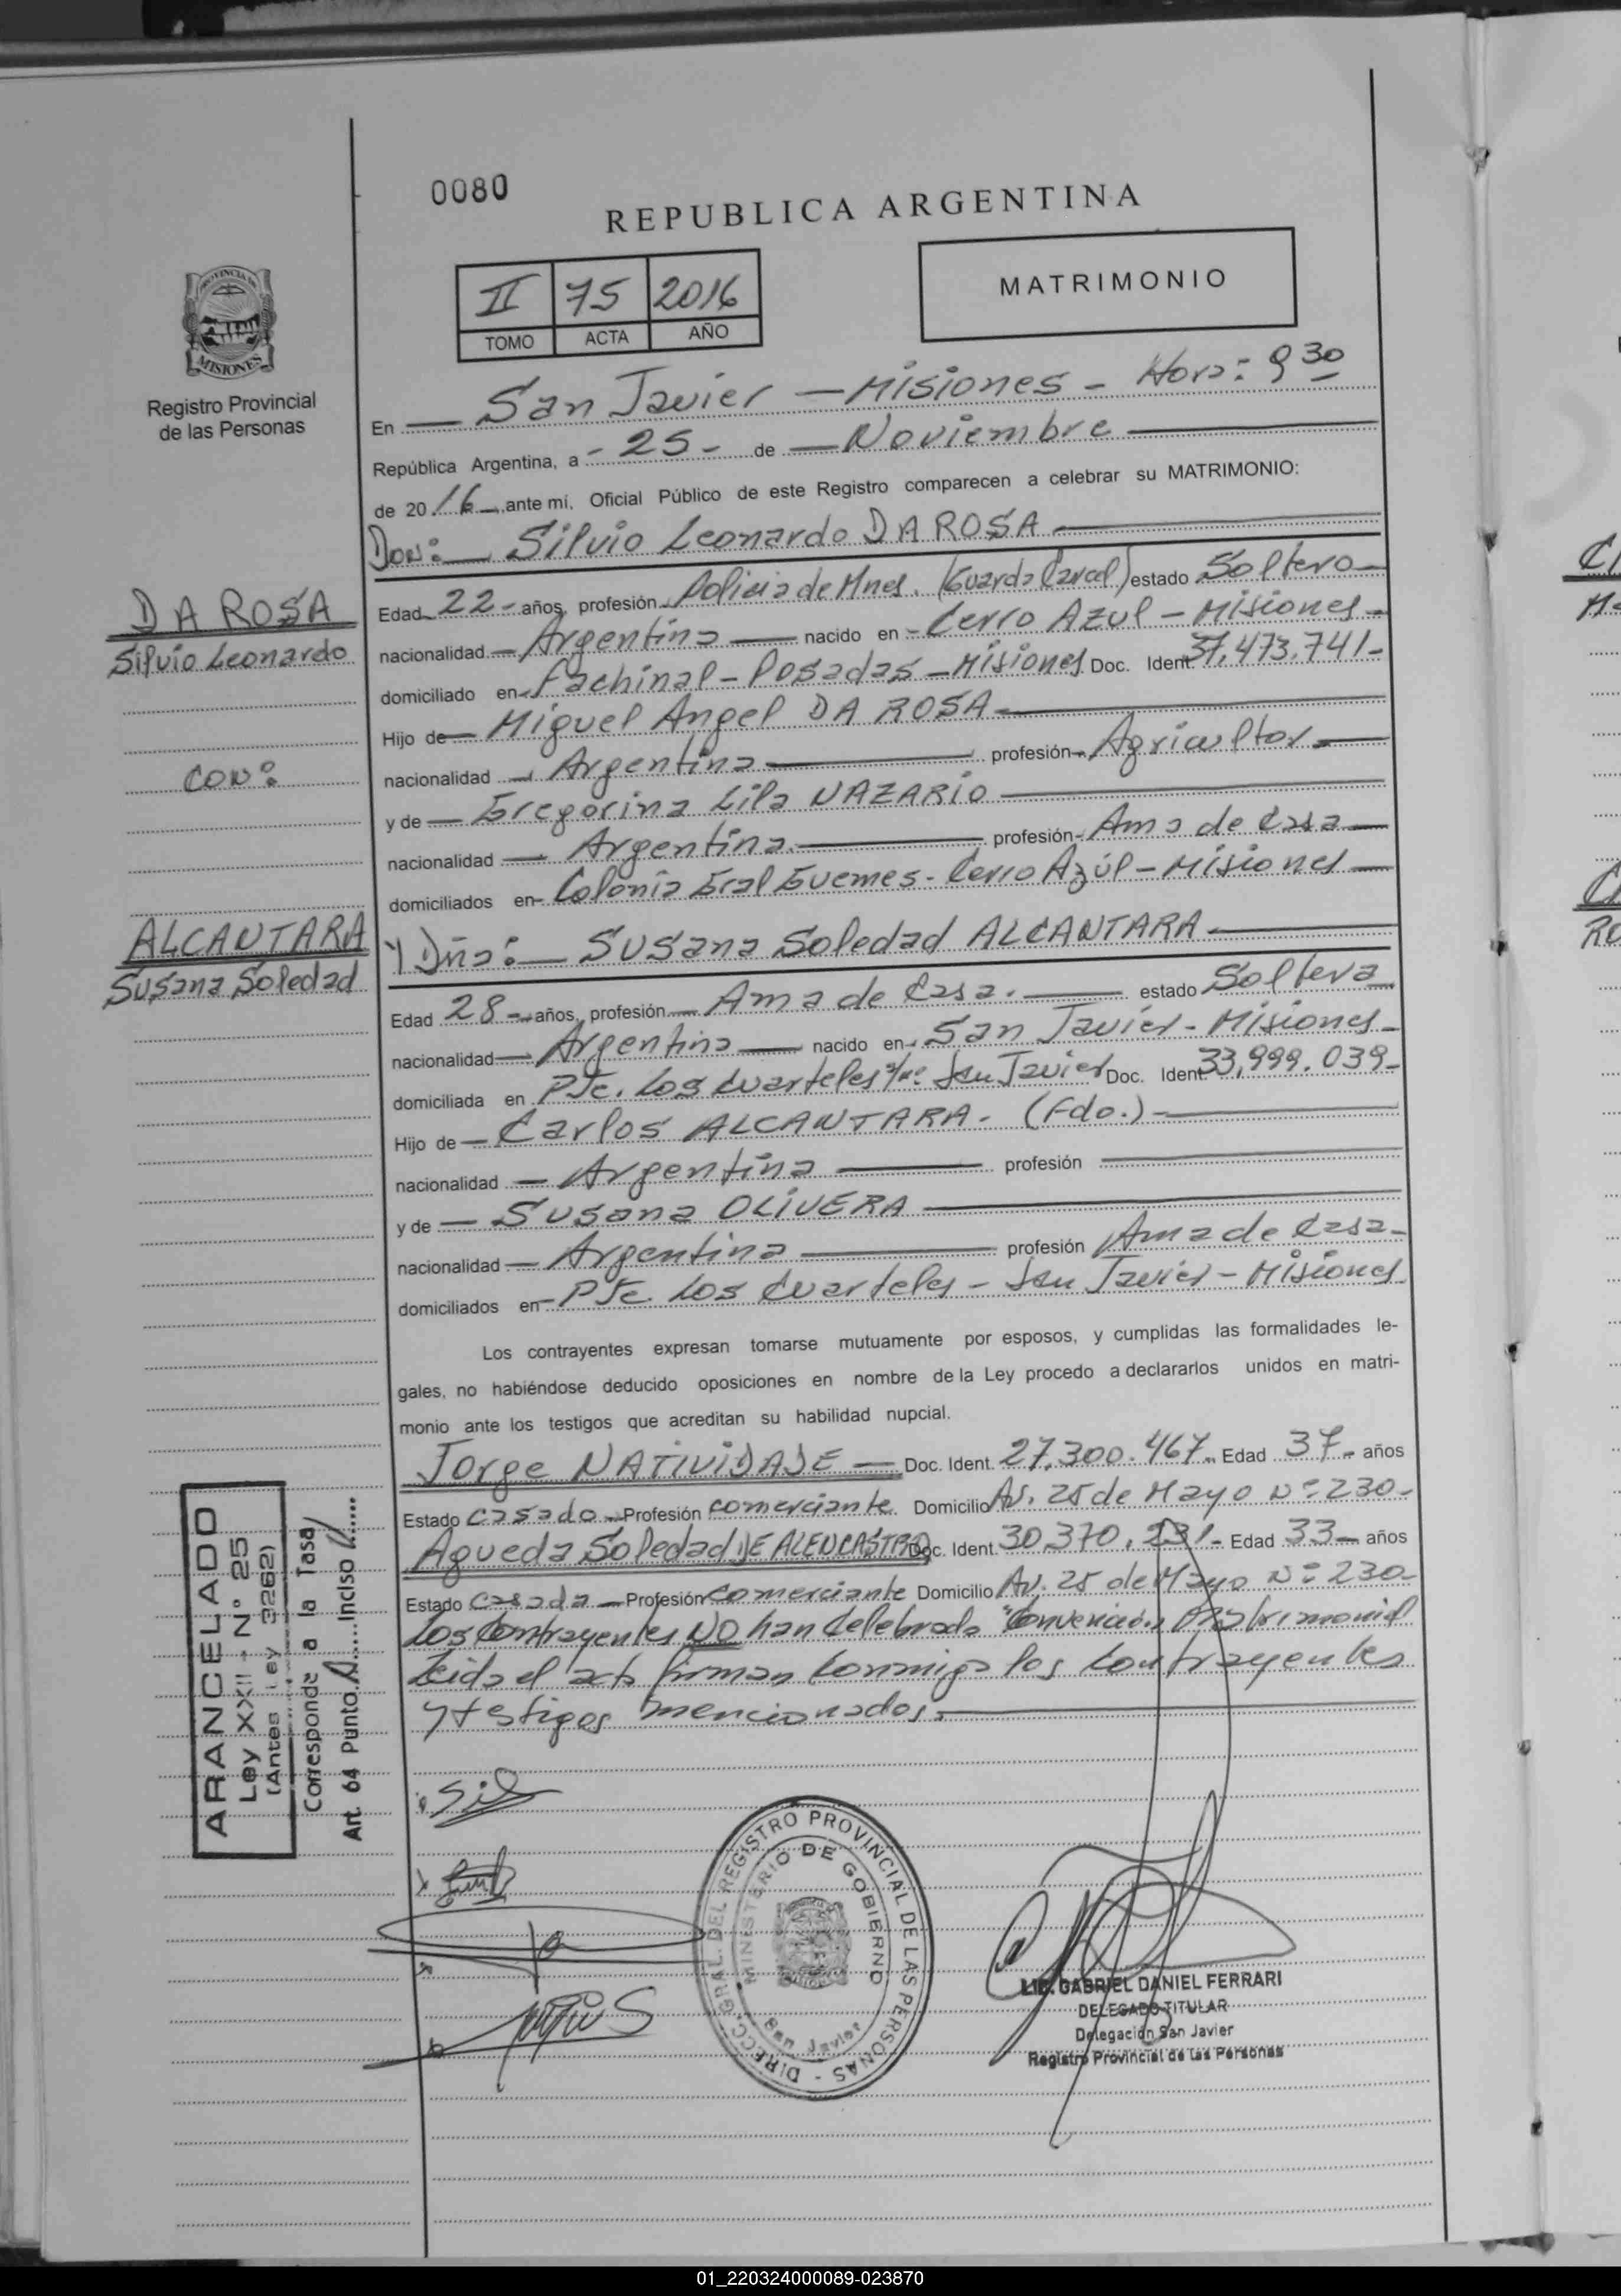 0080
REPUBLICA ARGENTINA
II 75 2016
TOMO ACTA AÑO
MATRIMONIO
PROVINCIA DE
MISIONES
Registro Provincial
de las Personas
En San Javier - Misiones - Hora: 9 30
República Argentina, a - 25 - de Noviembre
de 2016 ante mí, Oficial Público de este Registro comparecen a celebrar su MATRIMONIO:
Don: Silvio Leonardo DA ROSA
Edad 22 - años, profesión Policia de Mnes. (Guarda Carcel) estado Soltero
nacionalidad Argentina nacido en Cerro Azul - Misiones -
domiciliado en Fachinal - Posadas - Misiones Doc. Ident. 37.473.741 -
Hijo de Miguel Angel DA ROSA
nacionalidad Argentina profesión Agricultor
y de Gregorina Lila NAZARIO
nacionalidad Argentina profesión Ama de Casa
domiciliados en Colonia Gral Guemes - Cerro Azúl - Misiones
Y Dña: SUSana Soledad ALCANTARA
Edad 28 - años, profesión Ama de Casa. estado Soltera
nacionalidad Argentina nacido en San Javier - Misiones -
domiciliada en Pje. Los Cuarteles s/nº San Javier Doc. Ident. 33,999.039 -
Hijo de Carlos ALCANTARA. (Fdo.)
nacionalidad Argentina profesión
y de Susana OLIVERA
nacionalidad Argentina profesión Ama de Casa -
domiciliados en Pje Los Cuarteles - San Javier - Misiones
Los contrayentes expresan tomarse mutuamente por esposos, y cumplidas las formalidades le-
gales, no habiéndose deducido oposiciones en nombre de la Ley procedo a declararlos unidos en matri-
monio ante los testigos que acreditan su habilidad nupcial.
Jorge NATIVIDADE Doc. Ident. 27.300.467 Edad 37 - años
Estado casado Profesión comerciante. Domicilio Av. 25 de Mayo Nº 230 -
Agueda Soledad DE ALENCASTRO Doc. Ident. 30.370.231 - Edad 33 años
Estado casada Profesión comerciante Domicilio Av. 25 de Mayo Nº 230 -
Los Contrayentes NO han Celebrado "Convención Patrimonial
Leida el acta firman conmigo los contrayentes
y testigos mencionados.
DA ROSA
Silvio Leonardo
CON:
ALCANTARA
Susana Soledad
ARANCELADO
Ley XXII - N° 25
(Antes Ley 3262)
Corresponde a la Tasa
Art. 64 Punto A Inciso
DIRECC. GRAL. DEL REGISTRO PROVINCIAL DE LAS PERSONAS -
MINISTERIO DE GOBIERNO
San Javier
LIC. GABRIEL DANIEL FERRARI
DELEGADO TITULAR
Delegación San Javier
Registro Provincial de las Personas
01_220324000089-023870